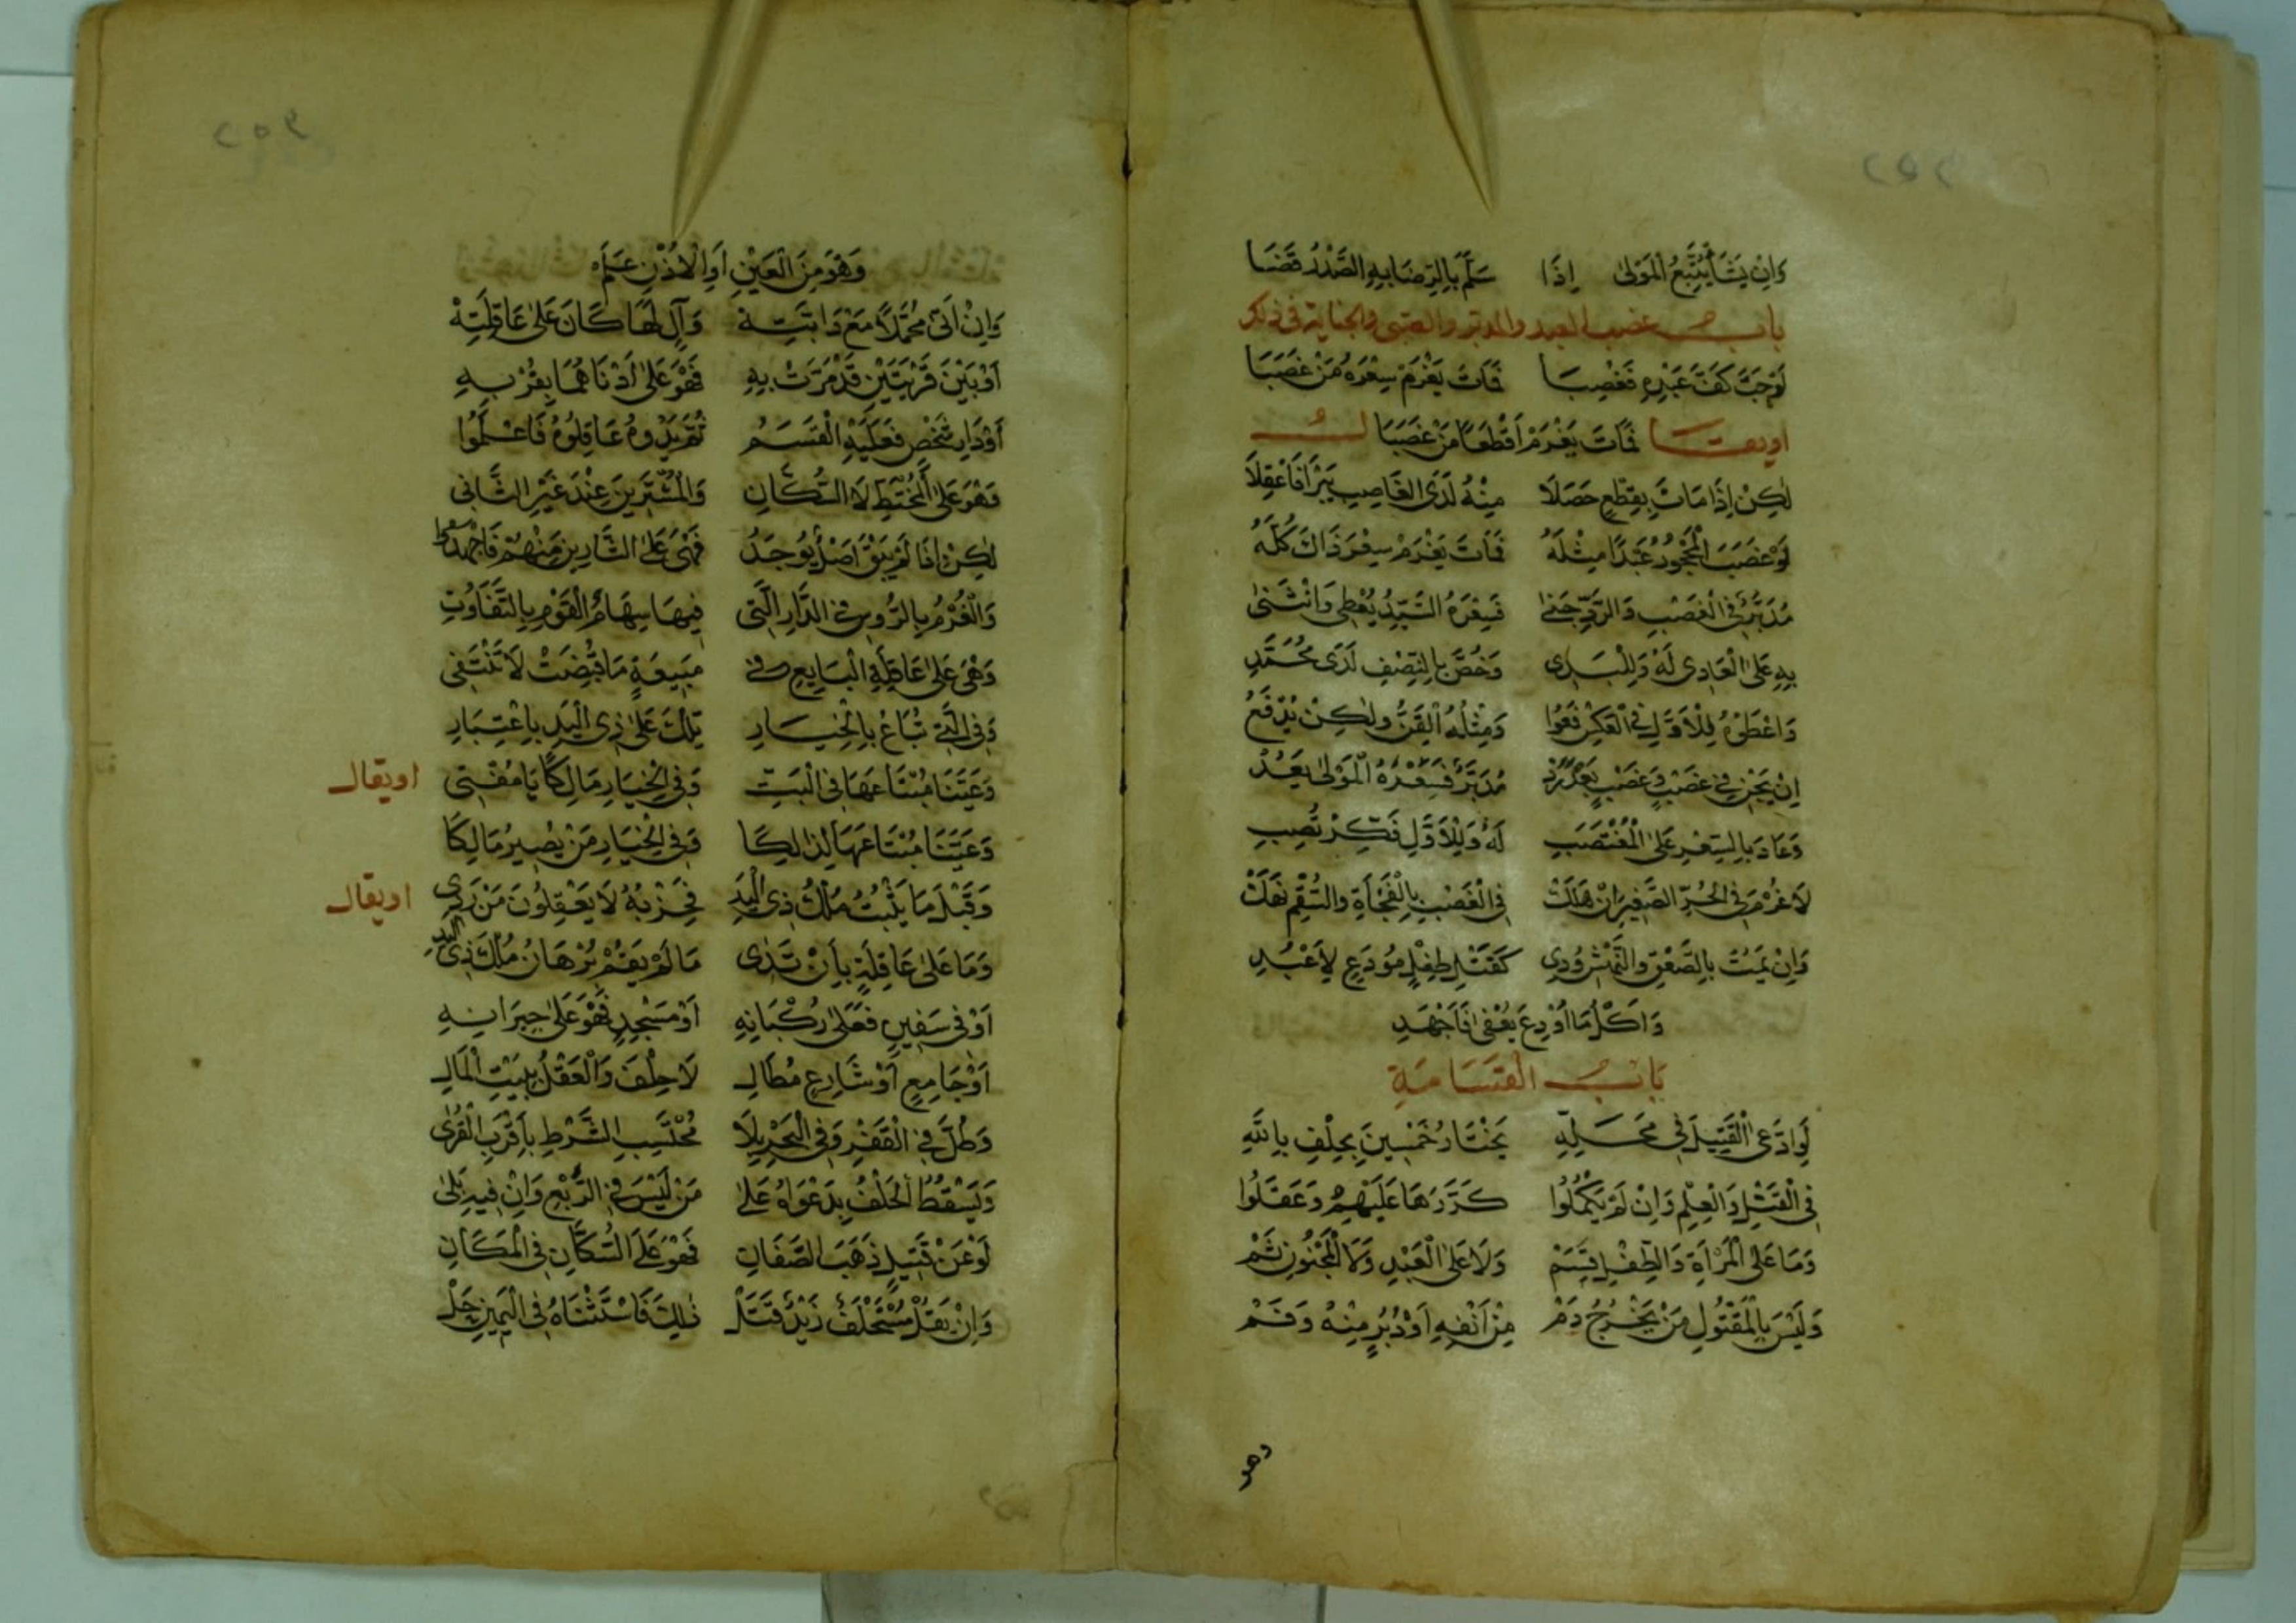 وَاِنْ يَشَأْ يَتَّبِعُ الْمَوْلٰى اِذَا سَلَّمَ بِالرِّضَا بِهِ الصَّدْرُ قَضَا
باب غصب العبد والمدبر والصبى والجناية فى ذلك
لَوْ جَبَّ كَفَّ عَبْدِهِ فَغُصِبَا فَمَاتَ يَغْرَمْ سِعْرَهُ مَنْ غَصَبَا
او يقال فَمَاتَ يَغْرَمْ اَقْطَعًا مَنْ غَصَبَا
لٰكِنْ اِذَا مَاتَ بِقِطْعٍ حَصَلَا مِنْهُ لَدَى الْغَاصِبِ يَبْرَا فَاعْقِلَا
لَوْ غَصَبَ الْمَحْجُورُ عَبْدًا مِثْلَهُ فَمَاتَ يَغْرَمْ سِعْرَ ذَاكَ كُلَّهُ
مُدَبَّرٌ فِى الْغَصْبِ وَالرَّدِّ جَنٰى فَسِعْرَهُ السَّيِّدُ يُعْطِى وَانْثَنٰى
بِهِ عَلَى الْعَادِى لَهُ وَلِلْبَدِى وَخُصَّ بِالنِّصْفِ لَدَى مُحَمَّدِ
وَاَعْطٰى لِلْاَوَّلِ فِى الْعَكْسِ فَعُوا وَمِثْلُهُ الْقِنُّ وَلٰكِنْ يُدْفَعُ
اِنْ يَجْنِ فِى غَصْبٍ وَغَصْبٍ بَعْدَ رَدْ مُدَبَّرٌ فَسِعْرَهُ الْمَوْلٰى يَعُدْ
وَعَادَ بِالسِّعْرِ عَلَى الْمُغْتَصِبِ لَهُ وَلِلْاَوَّلِ فَكِّرْ تُصِبِ
لَا غُرْمَ فِى الْحُرِّ الصَّغِيرِ اِنْ هَلَكْ فِى الْغَصْبِ بِالْفَجْأَةِ وَالسُّقْمِ نَهَكْ
وَاِنْ يَمُتْ بِالصَّعْقِ وَالنَّهْشِ وُدِى كَقَتْلِ طِفْلٍ مُودَعٍ لِاَعْبُدِ
وَاَكْلُ مَا اُودِعَ يُعْفٰى فَاجْهَدِ
بَابُ الْقَسَامَةِ
لَوِ ادَّعٰى الْقَتِيلَ فِى مَحَلِّهِ يَخْتَارُ خَمْسِينَ بِحِلْفٍ بِاللهِ
فِى الْقَتْلِ وَالْعِلْمِ وَاِنْ لَمْ يَكْمُلُوا كَرَّرَهَا عَلَيْهِمُ وَعَقَلُوا
وَمَا عَلَى الْمَرْأَةِ وَالطِّفْلِ قَسَمْ وَلَا عَلَى الْعَبْدِ وَلَا الْمَجْنُونِ ثَمْ
وَلَيْسَ بِالْمَقْتُولِ مَنْ يَخْرُجُ دَمْ مِنْ اَنْفِهِ اَوْ دُبُرٍ مِنْهُ وَفَمْ
وهو
وَهْوَ مِنَ الْعَيْنِ اَوِ الْاُذْنِ عَلَمْ
وَاِنْ اَتٰى مُحَمَّلًا مَعْ دَابَّتِهْ وَآلٍ لَهَا كَانَ عَلٰى عَاقِلَتِهْ
اَوْ بَيْنَ قَرْيَتَيْنِ قَدْ مَرَّتْ بِهِ فَهْوَ عَلٰى اَدْنَاهُمَا بِقُرْبِهِ
اَوْ دَارِ شَخْصٍ فَعَلَيْهِ الْقَسَمُ ثُمَّ يَدُوهُ عَاقِلُوهُ فَاعْلَمُوا
وَهْوَ عَلَى الْمُخْتَطِّ لَا السُّكَّانِ وَالْمُشْتَرِينَ عِنْدَ غَيْرِ الثَّانِى
لٰكِنْ اِذَا لَمْ يَبْقَ اَصْلٌ يُوجَدُ فَهْىَ عَلَى الشَّارِينَ مِنْهُمْ فَاجْهَدُوا
وَالْغُرْمُ بِالرُّوسِ فِى الدَّارِ الَّتِى فِيهَا سِهَامُ الْقَوْمِ بِالتَّفَاوُتِ
وَهْىَ عَلٰى عَاقِلَةِ الْبَايِعِ فِى مَبِيعَةٍ مَا قُبِضَتْ لَا تَنْتَفِى
وَفِى الَّتِى تُبَاعُ بِالْخِيَارِ تِلْكَ عَلٰى ذِى الْيَدِ بِاعْتِبَارِ
وَعَيَّنَا مُبْتَاعَهَا فِى الْبَتِّ وَفِى الْخِيَارِ مَالِكًا يَا مُفْتِى او يقال
وَعَيَّنَا مُبْتَاعَهَا لِذٰلِكَا وَفِى الْخِيَارِ مَنْ يَصِيرُ مَالِكَا
وَقَبْلَ مَا يَثْبُتُ مُلْكُ ذِى الْيَدِ فَحِزْبُهُ لَا يَعْقِلُونَ مَنْ رَدِى او يقال
وَمَا عَلٰى عَاقِلَةٍ بِاَنْ تَدِى مَا لَمْ يَقُمْ بُرْهَانُ مُلْكِ ذِى الْيَدِ
اَوْ فِى سَفِينٍ فَعَلٰى رُكْبَانِهِ اَوْ مَسْجِدٍ فَهْوَ عَلٰى جِيرَانِهِ
اَوْ جَامِعٍ اَوْ شَارِعٍ مُطَالِ لَا حِلْفَ وَالْعَقْلُ بِبَيْتِ الْمَالِ
وَطُلَّ فِى الْقَفْرِ وَفِى الْبَحْرِ بِلَا مُحْتَسِبِ الشَّرْطِ بِاَقْرَبِ الْقُرٰى
وَيَسْقُطُ الْحَلْفُ بِدَعْوَاهُ عَلٰى مَنْ لَيْسَ فِى الرَّبْعِ وَاِنْ فِيهِ بَلٰى
لَوْ عَنْ قَتِيلٍ ذَهَبَ الصَّفَانِ فَهْوَ عَلَى السُّكَّانِ فِى الْمَكَانِ
وَاِنْ يَقُلْ مُسْتَحْلَفٌ زَيْدٌ قَتَلْ ذٰلِكَ فَاسْتَثْنَاهُ فِى الْيَمِينِ حَلْ